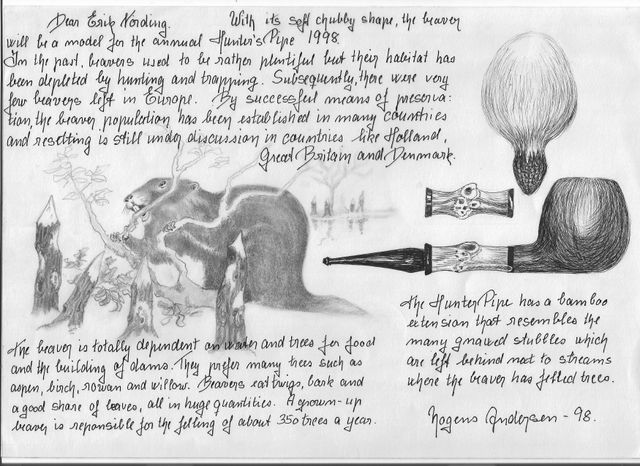 Dear Erik Nording. With its soft chubby shape, the beaver
will be a model for the annual Hunter's Pipe 1998.
In the past, beavers used to be rather plentiful but their habitat has
been depleted by hunting and trapping. Subsequently, there were very
few beavers left in Europe. By successful means of preserva-
tion the beaver population has been established in many countries
and resetting is still under discussion in countries like Holland,
Great Britain and Denmark.
The Hunter Pipe has a bamboo
extension that resembles the
many gnawed stubbles which
are left behind next to streams
where the beaver has felled trees.
The beaver is totally dependent on water and trees for food
and the building of dams. They prefer many trees such as
aspen, birch, rowan and willow. Beavers eat twigs, bark and
a good share of leaves, all in huge quantities. A grown-up
beaver is reponsible for the felling of about 350 trees a year.
Mogens Andersen - 98.